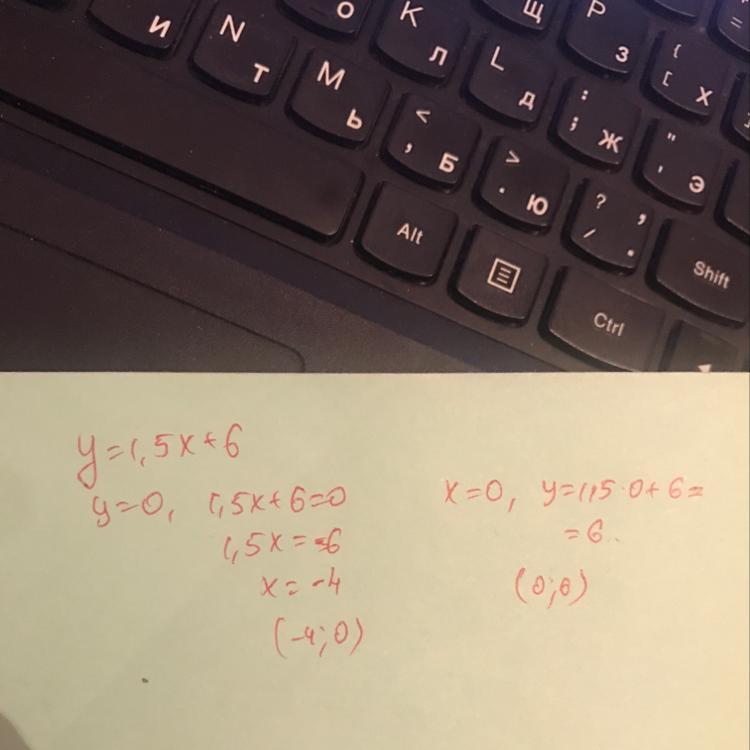 О K Щ P
И N Л L З { [ Х =
Т M Д : ; Ж " ' Э
Ь < , Б > . Ю ? , / .
Alt Shift
Ctrl
y=1,5x+6
y=0, 1,5x+6=0
1,5x=-6
x=-4
(-4;0)
x=0, y=1,5·0+6=
=6
(0;6)